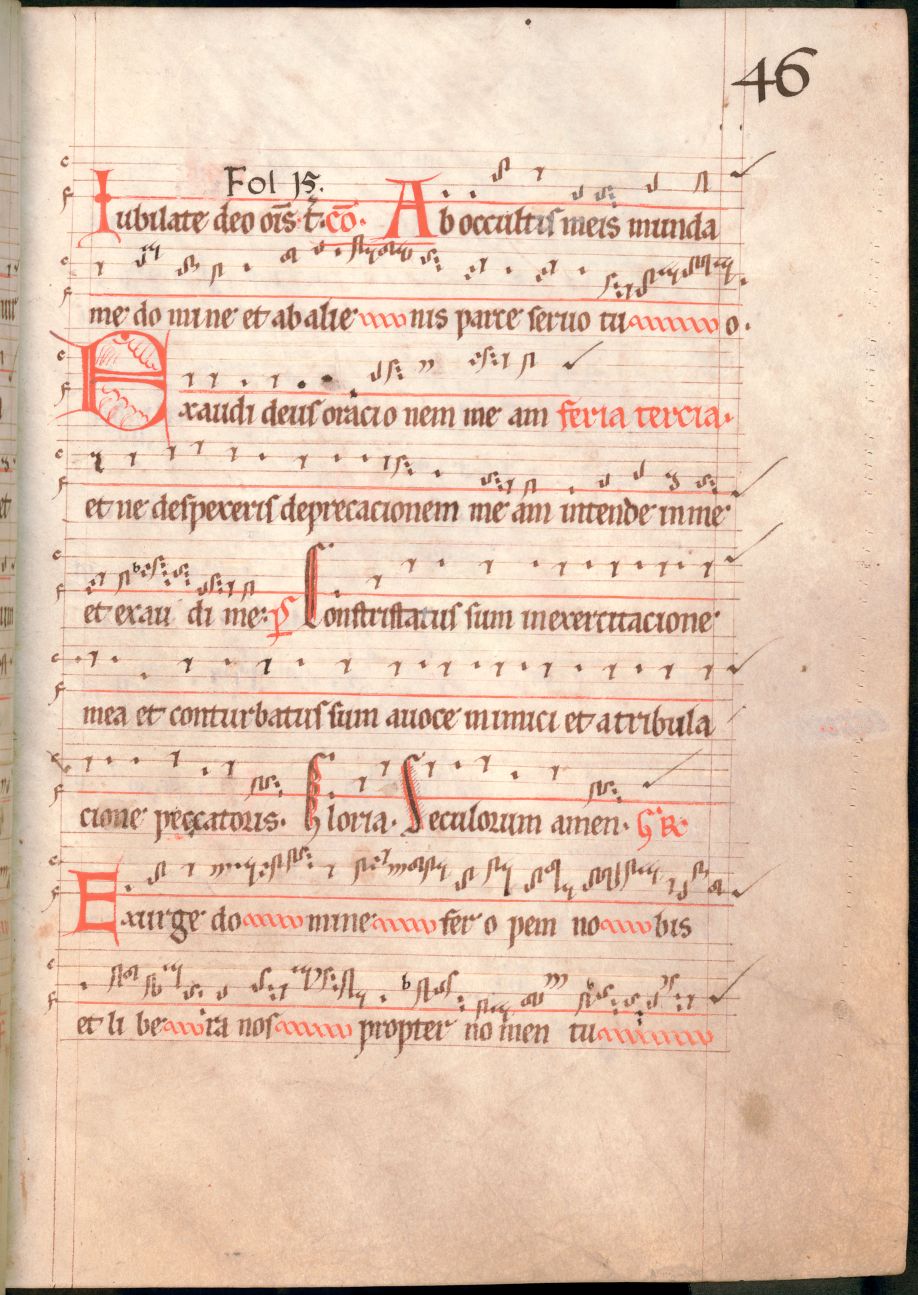 46
Fol 15.
Iubilate deo oīs t̄. cō. Ab occultis meis munda
me do mi ne et ab alie nis parce seruo tu o.
Exaudi deus oracio nem me am feria tercia.
et ne despexeris deprecacionem me am intende in me
et exau di me: ps Constristatus sum in exercitacione
mea et conturbatus sum a uoce inimici et a tribula
cione peccatoris. Gloria. Seculorum amen. Gr̄
Exurge do mine fer o pem no bis
et li be ra nos propter no men tu